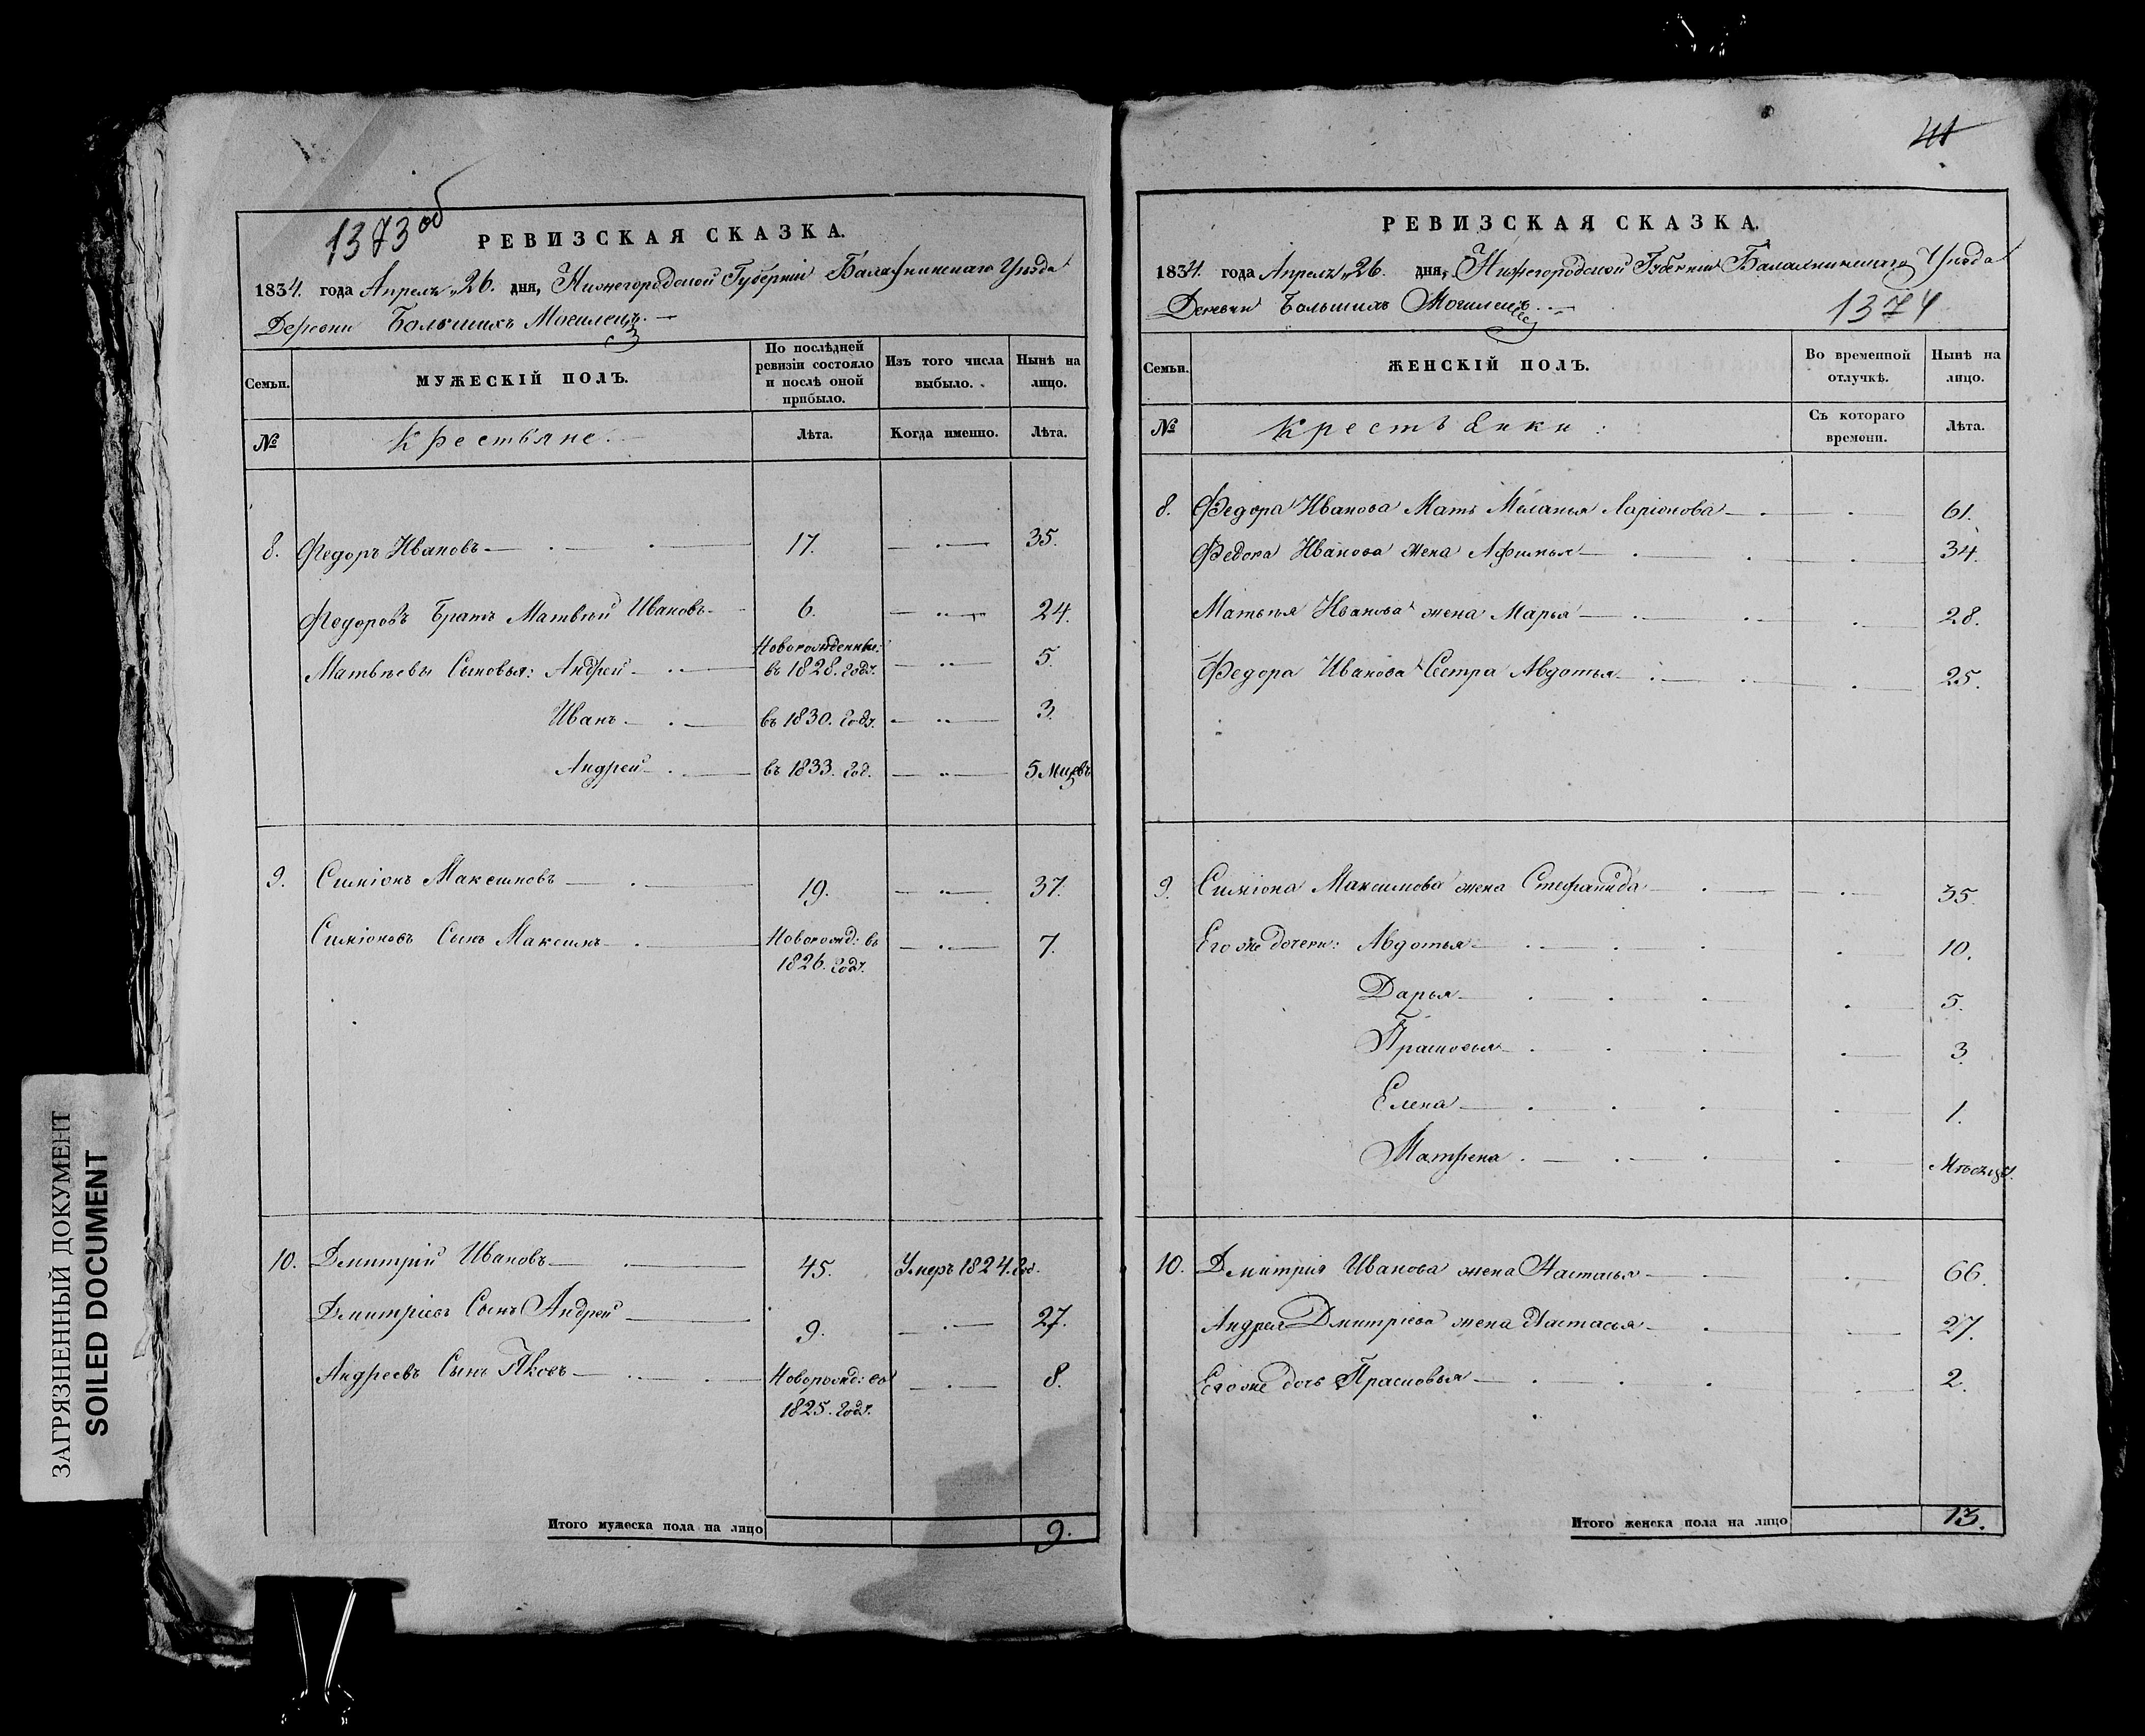 1373 об
РЕВИЗСКАЯ СКАЗКА.
1834. года Апреля „26. дня, Нижегородской Губерніи Балахнинскаго Уезда
Деревни Большихъ Могилецъ.
Семьи.
МУЖЕСКІЙ ПОЛЪ.
По послѣдней ревизіи состояло и послѣ оной прибыло.
Изъ того числа выбыло.
Нынѣ на лицо.
№
Крестьяне.
Лѣта.
Когда именно.
Лѣта.
8. Федоръ Ивановъ 17. 35.
Федоровъ Братъ Матвѣй Ивановъ 6. 24.
Матвѣевы Сыновья: Андрей Новорожденные: въ 1828. Году. 5.
Иванъ въ 1830. Году. 3.
Андрей въ 1833. Год. 5 Мцевъ
9. Симіонъ Максимовъ 19. 37.
Симіоновъ Сынъ Максимъ Новорожд: въ 1826. Году. 7.
10. Дмитрій Ивановъ 45. Умеръ 1824. Год.
Дмитріевъ Сынъ Андрей 9. 27.
Андреевъ Сынъ Яковъ Новорожд: въ 1825. Году. 8.
Итого мужеска пола на лицо 9.
41
РЕВИЗСКАЯ СКАЗКА.
1834. года Апреля „26. дня, Нижегородской Губерніи Балахнинскаго Уезда
Деревни Большихъ Могилецъ
1374
Семьи.
ЖЕНСКІЙ ПОЛЪ.
Во временной отлучкѣ.
Нынѣ на лицо.
№
Крестьянки:
Съ котораго времени.
Лѣта.
8. Федора Иванова Мать Меланья Ларіонова 61.
Федора Иванова Жена Афимья 34.
Матвѣя Иванова жена Марья 28.
Федора Иванова Сестра Авдотья 25.
9. Симіона Максимова жена Стефанида 35.
Его же дочери: Авдотья 10.
Дарья 5.
Прасковья 3.
Елена 1.
Матрена Мѣсяцъ.
10. Дмитрія Иванова жена Настасья 66.
Андрея Дмитріева жена Настасья 27.
Его же дочь Прасковья 2.
Итого женска пола на лицо 13.
ЗАГРЯЗНЕННЫЙ ДОКУМЕНТ
SOILED DOCUMENT